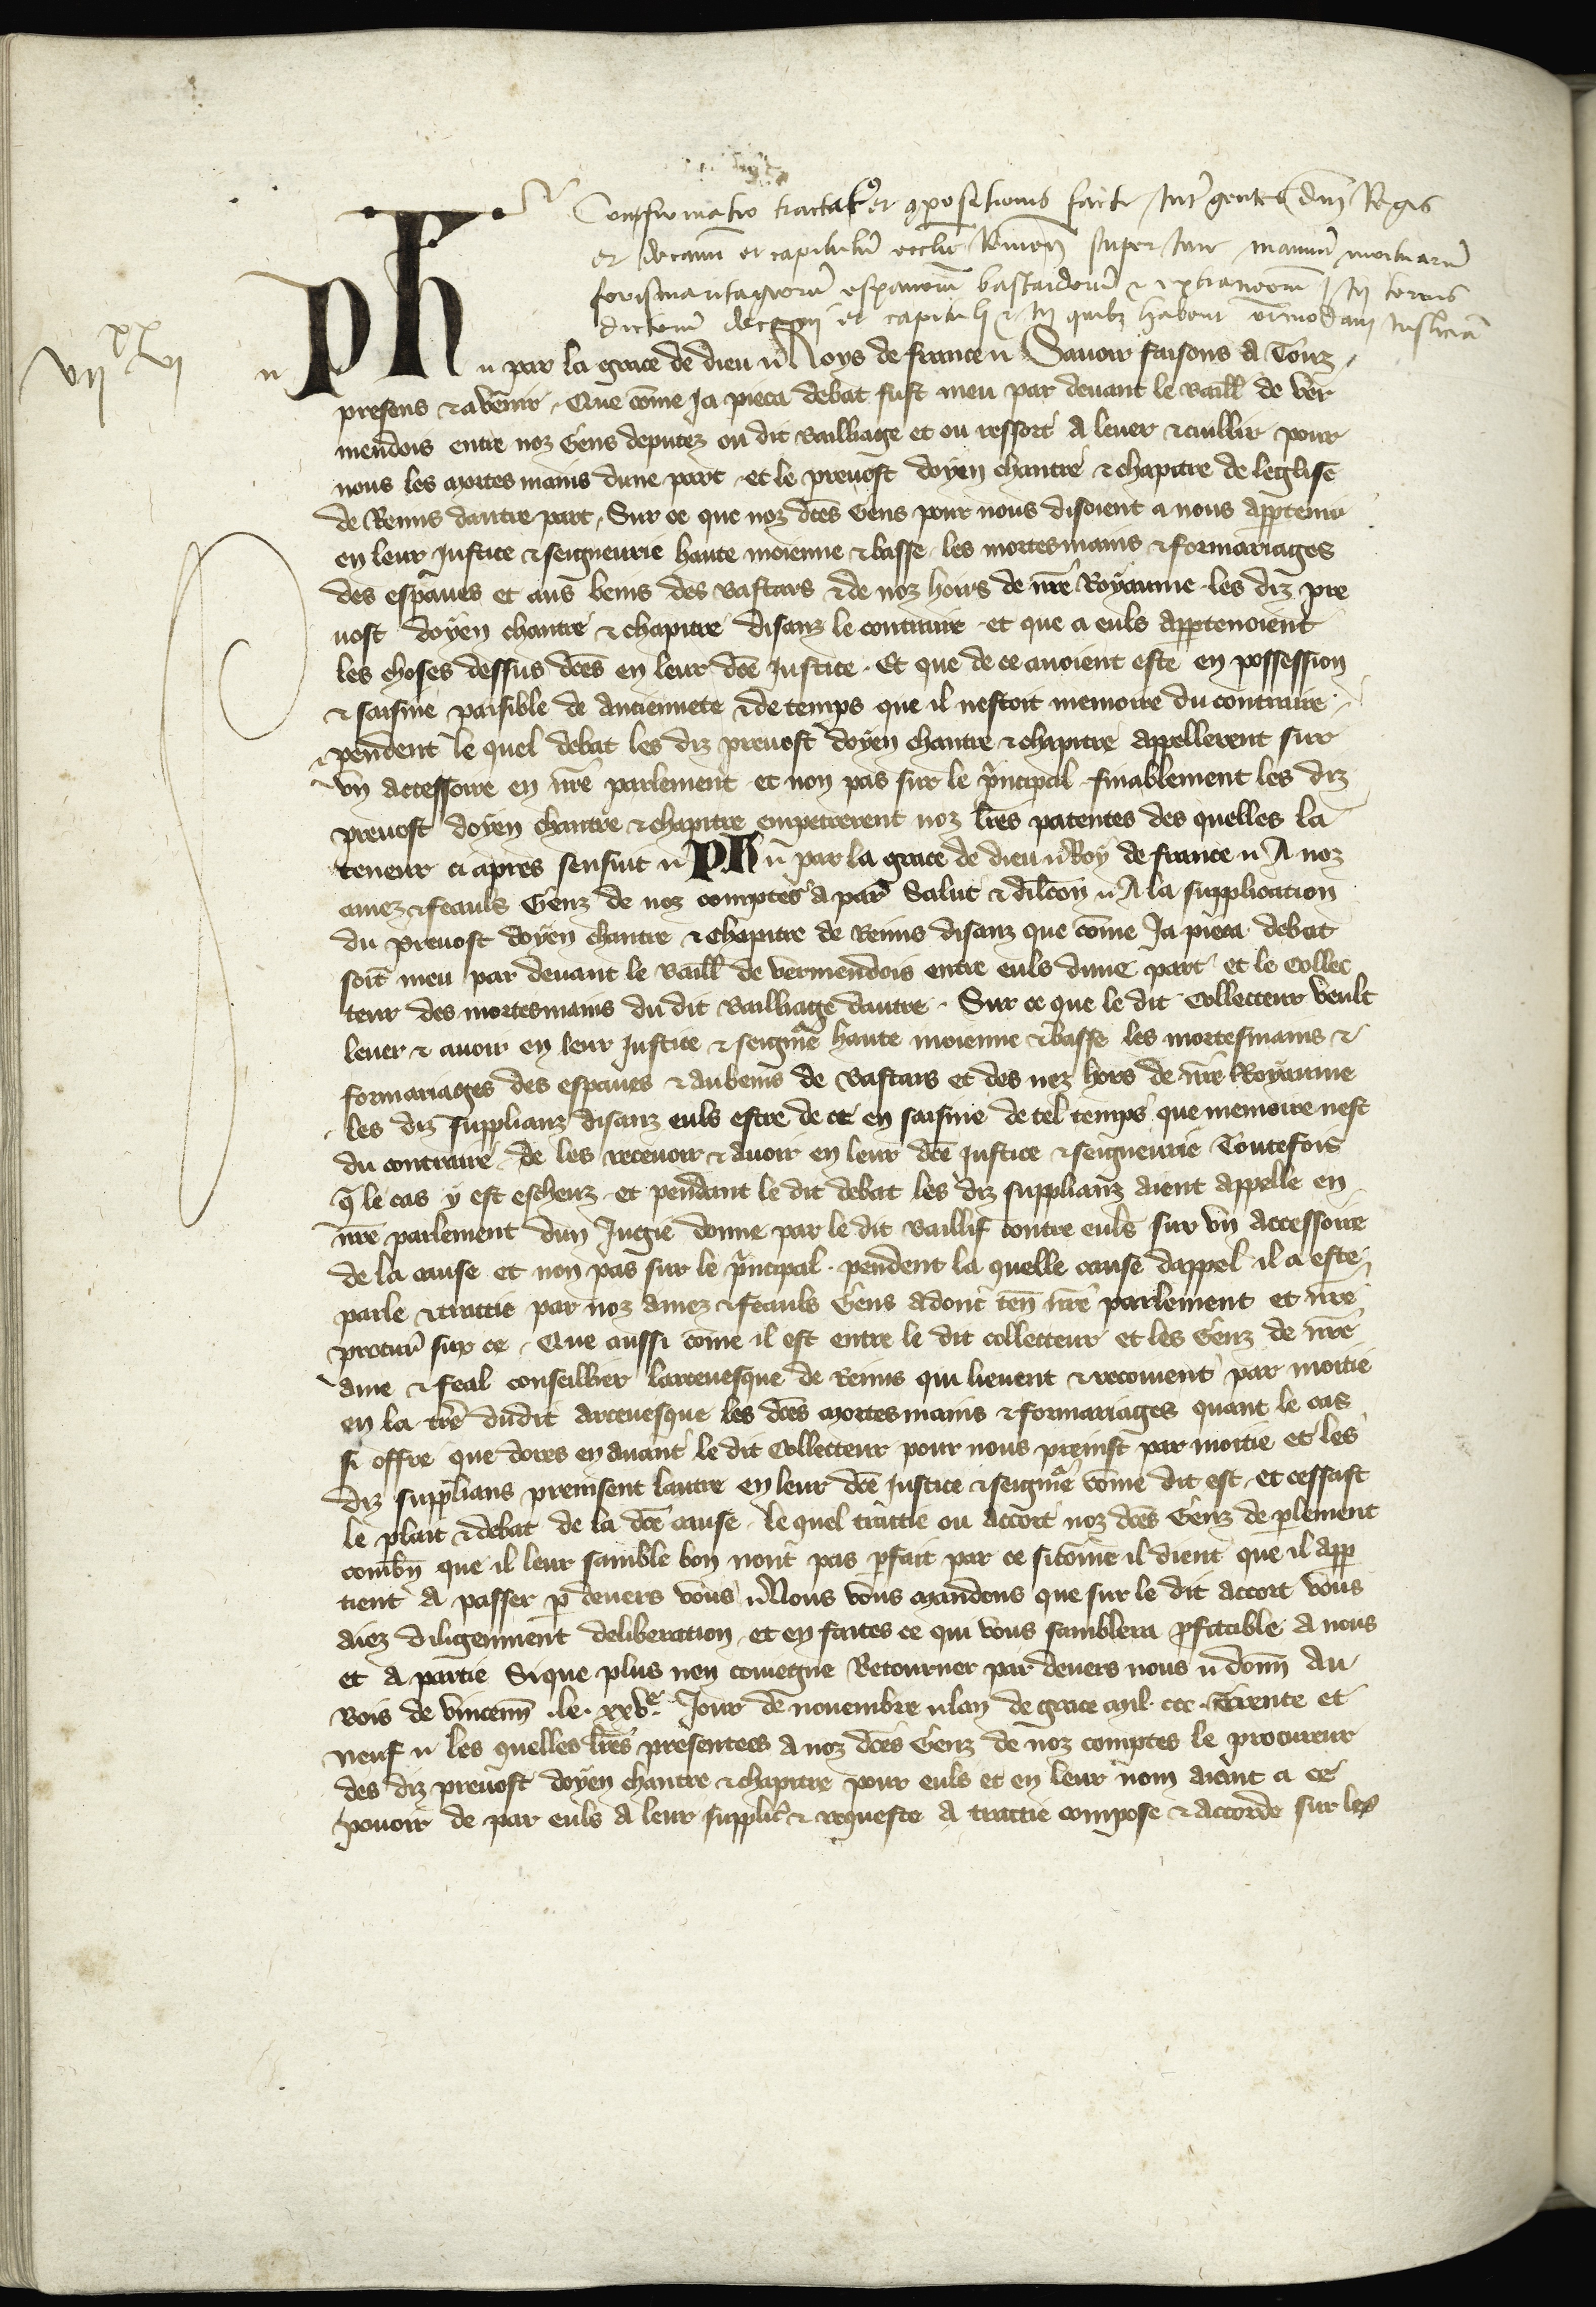 Confirmatio tractat9 et compositionis facte Int' gentes dm̄ Regis
et decanū et capitulū ecclie Remen̄ super Iure manuū mortuarū
forismaritagiorū espavorū bastardorū & extraneorū In terris
dictorū decani et capituli & In quibz habent om̄imodam Iusticiā
VIIxx VI
Ph par la grace de dieu Roys de france Savoir faisons a Touz
presens & avenir. Que cōme Ja pieca debat fust meu par devant le Baill de Ver
mendois entre noz Gens deputez ou dit Bailliage et ou ressort a lever & cuillir pour
nous les mortes mains dune part et le prevost doyen chantre & chapitre de leglise
de Reims dautre part, Sur ce que noz dc̄es Gens pour nous disoient a nous app̄tenir
en leur justice & seigneurie haute moienne & basse les mortesmains & formariages
des espaves et aus bems des Bastars & de noz hoirs de nr̄e Royaume les diz pre
vost doyen chantre & chapitre disanz le contraire et que a euls app̄tenoient
les choses dessus dc̄es en leur dc̄e justice. Et que de ce avoient este en possession
& saisine paisible de anciennete & de temps que il nestoit memoire du contraire
& pendent le quel debat les diz prevost doyen chantre & chapitre appellerent sur
un accessoire en nr̄e parlement et non pas sur le p'ncipal finablement les diz
prevost doyen chantre & chapitre empetrerent noz lr̄es patentes des quelles la
teneur ci apres sensuit Ph par la grace de dieu Roy de france A noz
amez & feauls Genz de noz comptes a par' Salut & dilc̄on A la supplication
du Prevost doyen chantre & Chapitre de Reims disanz que cōme Ja pieca debat
soit meu par devant le Baill de vermendois entre euls dune part et le Collec
teur des mortesmains du dit Bailliage dautre. Sur ce que le dit Collecteur veult
lever & avoir en leur justice & seign'ie haute moienne & basse les mortesmains &
formariages des espaves & aubems de Bastars et des nez hors de nr̄e Royaume
les diz supplianz disanz euls estre de ce en saisine de tel temps que memoire nest
du contraire de les recevoir & avoir en leur dc̄e justice & seigneurie Toutefois
q̄ le cas y est escheuz et pendant le dit debat les diz supplianz aient appelle en
nr̄e parlement dun Jugie donne par le dit Baillif contre euls sur un accessoire
de la cause et non pas sur le p'ncipal. pendent la quelle cause dappel il a este
parle & traittie par noz amez & feauls Gens adont ten̄ nr̄e parlement et nr̄e
procur' sur ce. Que aussi cōme il est entre le dit collecteur et les Genz de nr̄e
ame & feal conseillier larcevesque de Reims qui lievent & recoivent par moitie
en la tr̄e dudit arcevesque les dc̄es mortes mains & formariages quant le cas
si offre que dores en avant le dit Collecteur pour nous preinst par moitie et les
diz supplians preinsent lautre en leur dc̄e justice & seign'ie cōme dit est et cessast
le plait & debat de la dc̄e cause le quel traittie ou accort noz dc̄es Genz de p̄lement
combn̄ que il leur samble bon nont pas p̄fait par ce si cōme il dient que il app̄
tient a passer p̄ devers vous Nous vous mandons que sur le dit accort vous
aiez diligemment deliberation et en faites ce qui vous samblera p̄fitable a nous
et a partie Si que plus nen coviegne Retourner par devers nous donn̄ au
Bois de Vincenn̄ .le. xxve. Jour de novembre lan de grace mil. ccc. trente et
neuf les quelles lr̄es presentees a noz dc̄es Genz de noz comptes le procureur
des diz prevost doyen chantre & chapitre pour euls et en leur nom aiant a ce
pouoir de par euls a leur supplic' & requeste a traittie compose & accorde sur les